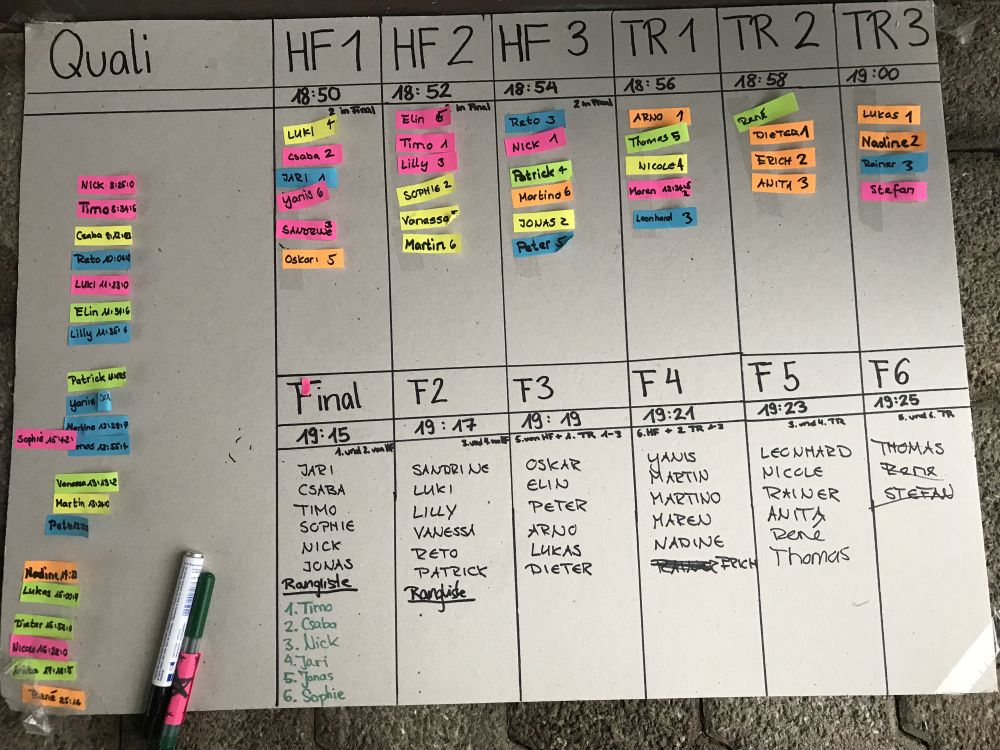 Quali
NICK 8:25:0
Timo 8:34:6
Csaba
Reto
LUKI 11:28:0
ELin 11:34:6
Lilly 11:35:6
Patrick
Yanis
Martino 12:29:7
Sophie
Jonas
Vanessa
Martin
Peter
Nadine
Lukas
Dieter
Nicole 16:28:0
René 25:16
HF 1
18:50
2 in Final
LUKI 4
Csaba 2
JARI 1
Yanis 6
SANDRINE 3
Oskar 5
HF 2
18:52
2 in Final
Elin
Timo 1
Lilly 3
SOPHIE 2
Vanessa
Martin 6
HF 3
18:54
2 in Final
Reto 3
NICK 1
Patrick 4
Martino 6
JONAS 2
Peter 5
TR 1
18:56
ARNO 1
Thomas 5
NICOLE 4
Maren
Leonhard 3
TR 2
18:58
René
DIETER 1
ERICH 2
ANITA 3
TR 3
19:00
Lukas 1
Nadine 2
Rainer 3
Stefan
Final
19:15
1. und 2. von HF
JARI
CSABA
TIMO
SOPHIE
NICK
JONAS
Rangliste
1. Timo
2. Csaba
3. Nick
4. Jari
5. Jonas
6. Sophie
F2
19:17
3. und 4. von HF
SANDRINE
LUKI
LILLY
VANESSA
RETO
PATRICK
Rangliste
F3
19:19
5. von HF + 1. TR 1-3
OSKAR
ELIN
PETER
ARNO
LUKAS
DIETER
F4
19:21
6. HF + 2 TR 1-3
YANIS
MARTIN
MARTINO
MAREN
NADINE
RAINER ERICH
F5
19:23
3. und 4. TR
LEONHARD
NICOLE
RAINER
ANITA
René
Thomas
F6
19:25
5. und 6. TR
THOMAS
René
STEFAN